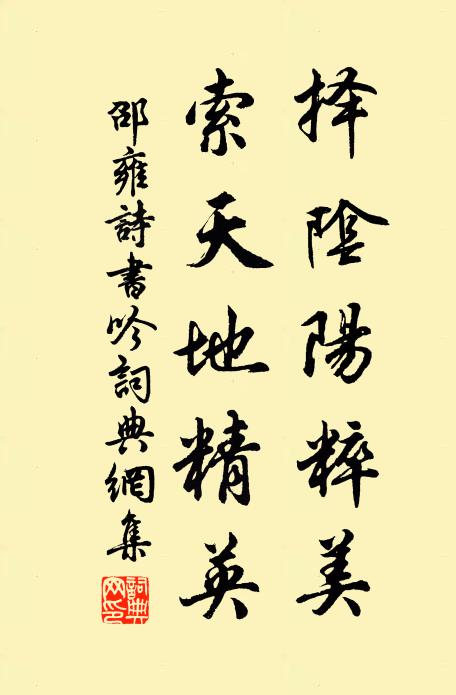 择陰陽粹美
索天地精英
邵雍詩書吟詞典網集